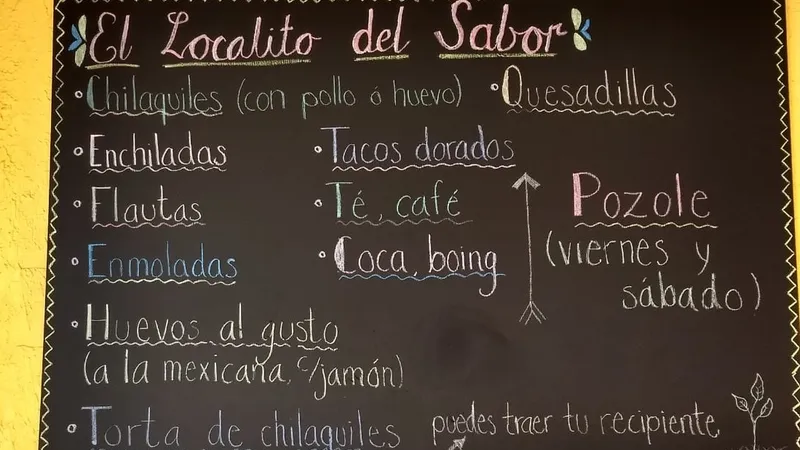 El Localito del Sabor
Chilaquiles (con pollo ó huevo)
Quesadillas
Enchiladas
Tacos dorados
Flautas
Té, café
Pozole
(viernes y
sábado)
Enmoladas
Coca, boing
Huevos al gusto
(a la mexicana, c/jamón)
Torta de chilaquiles
puedes traer tu recipiente